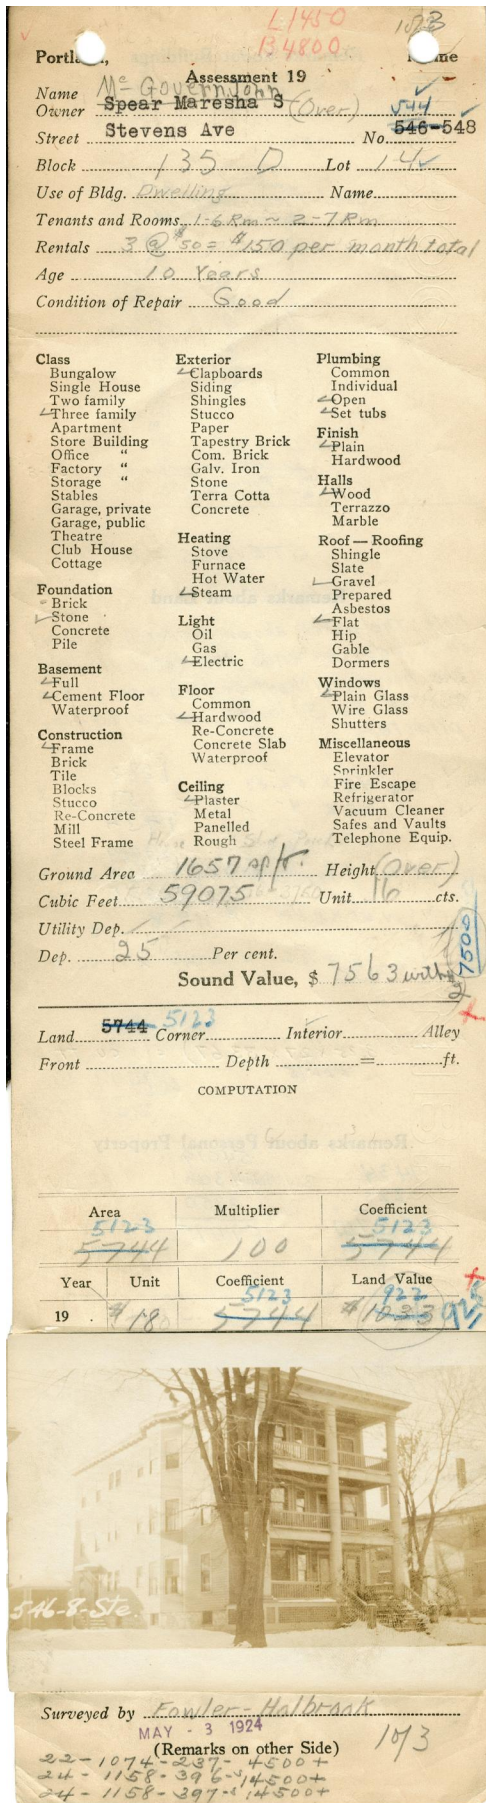 L 1450
B 4800
Portland, Maine
Assessment 19
Name Mc Govern John
Owner Spear Maresha S (Over) 544
Street Stevens Ave No. 546-548
Block 135 D Lot 14
Use of Bldg. Dwelling Name
Tenants and Rooms 1-6 Rm ~ 2-7 Rm
Rentals 3 @ $50 = $150 per month total
Age 10 Years
Condition of Repair Good
Class
Bungalow
Single House
Two family
Three family
Apartment
Store Building
Office "
Factory "
Storage "
Stables
Garage, private
Garage, public
Theatre
Club House
Cottage
Foundation
Brick
Stone
Concrete
Pile
Basement
Full
Cement Floor
Waterproof
Construction
Frame
Brick
Tile
Blocks
Stucco
Re-Concrete
Mill
Steel Frame
Exterior
Clapboards
Siding
Shingles
Stucco
Paper
Tapestry Brick
Com. Brick
Galv. Iron
Stone
Terra Cotta
Concrete
Heating
Stove
Furnace
Hot Water
Steam
Light
Oil
Gas
Electric
Floor
Common
Hardwood
Re-Concrete
Concrete Slab
Waterproof
Ceiling
Plaster
Metal
Panelled
Rough
Plumbing
Common
Individual
Open
Set tubs
Finish
Plain
Hardwood
Halls
Wood
Terrazzo
Marble
Roof — Roofing
Shingle
Slate
Gravel
Prepared
Asbestos
Flat
Hip
Gable
Dormers
Windows
Plain Glass
Wire Glass
Shutters
Miscellaneous
Elevator
Sprinkler
Fire Escape
Refrigerator
Vacuum Cleaner
Safes and Vaults
Telephone Equip.
Ground Area 1657 sq ft. Height (Over)
Cubic Feet 59075 Unit 16 cts.
Utility Dep.
Dep. 25 Per cent.
7500
Sound Value, $ 7563
Land 5744 5123 Corner Interior Alley
Front Depth = ft.
COMPUTATION
Area Multiplier Coefficient
5123 5123
5744 100 5744
Year Unit Coefficient Land Value
5123 922
19 $ .18 5744 $ 1033 925
546-8-Ste.
Surveyed by Fowler-Holbrook
MAY - 3 1924
(Remarks on other Side)
1 of 3
22-1074-237-4500+
24-1158-396-$14500+
24-1158-397-$14500+